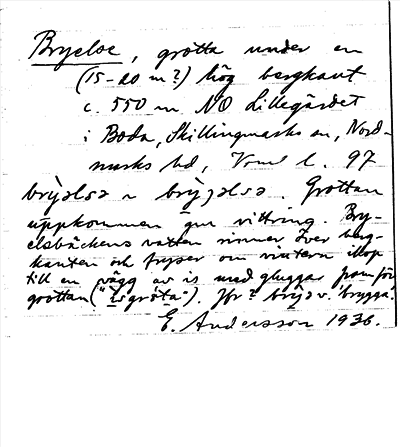 Bryelse, grotta under en
(15-20 m?) hög bergkant
c. 550 m NO Lillegärdet
i Boda, Skillingmarks sn, Nord-
marks hd, Vrml l. 97
Grottan
uppkommen gm vittring. Bry-
elsbäckens vatten rinner över berg-
kanten och fryser om vintern ihop
till en vägg av is med gluggar framför
grottan ("isgrotta"). Jfr ? brya v. 'brygga'.
E. Andersson 1936.